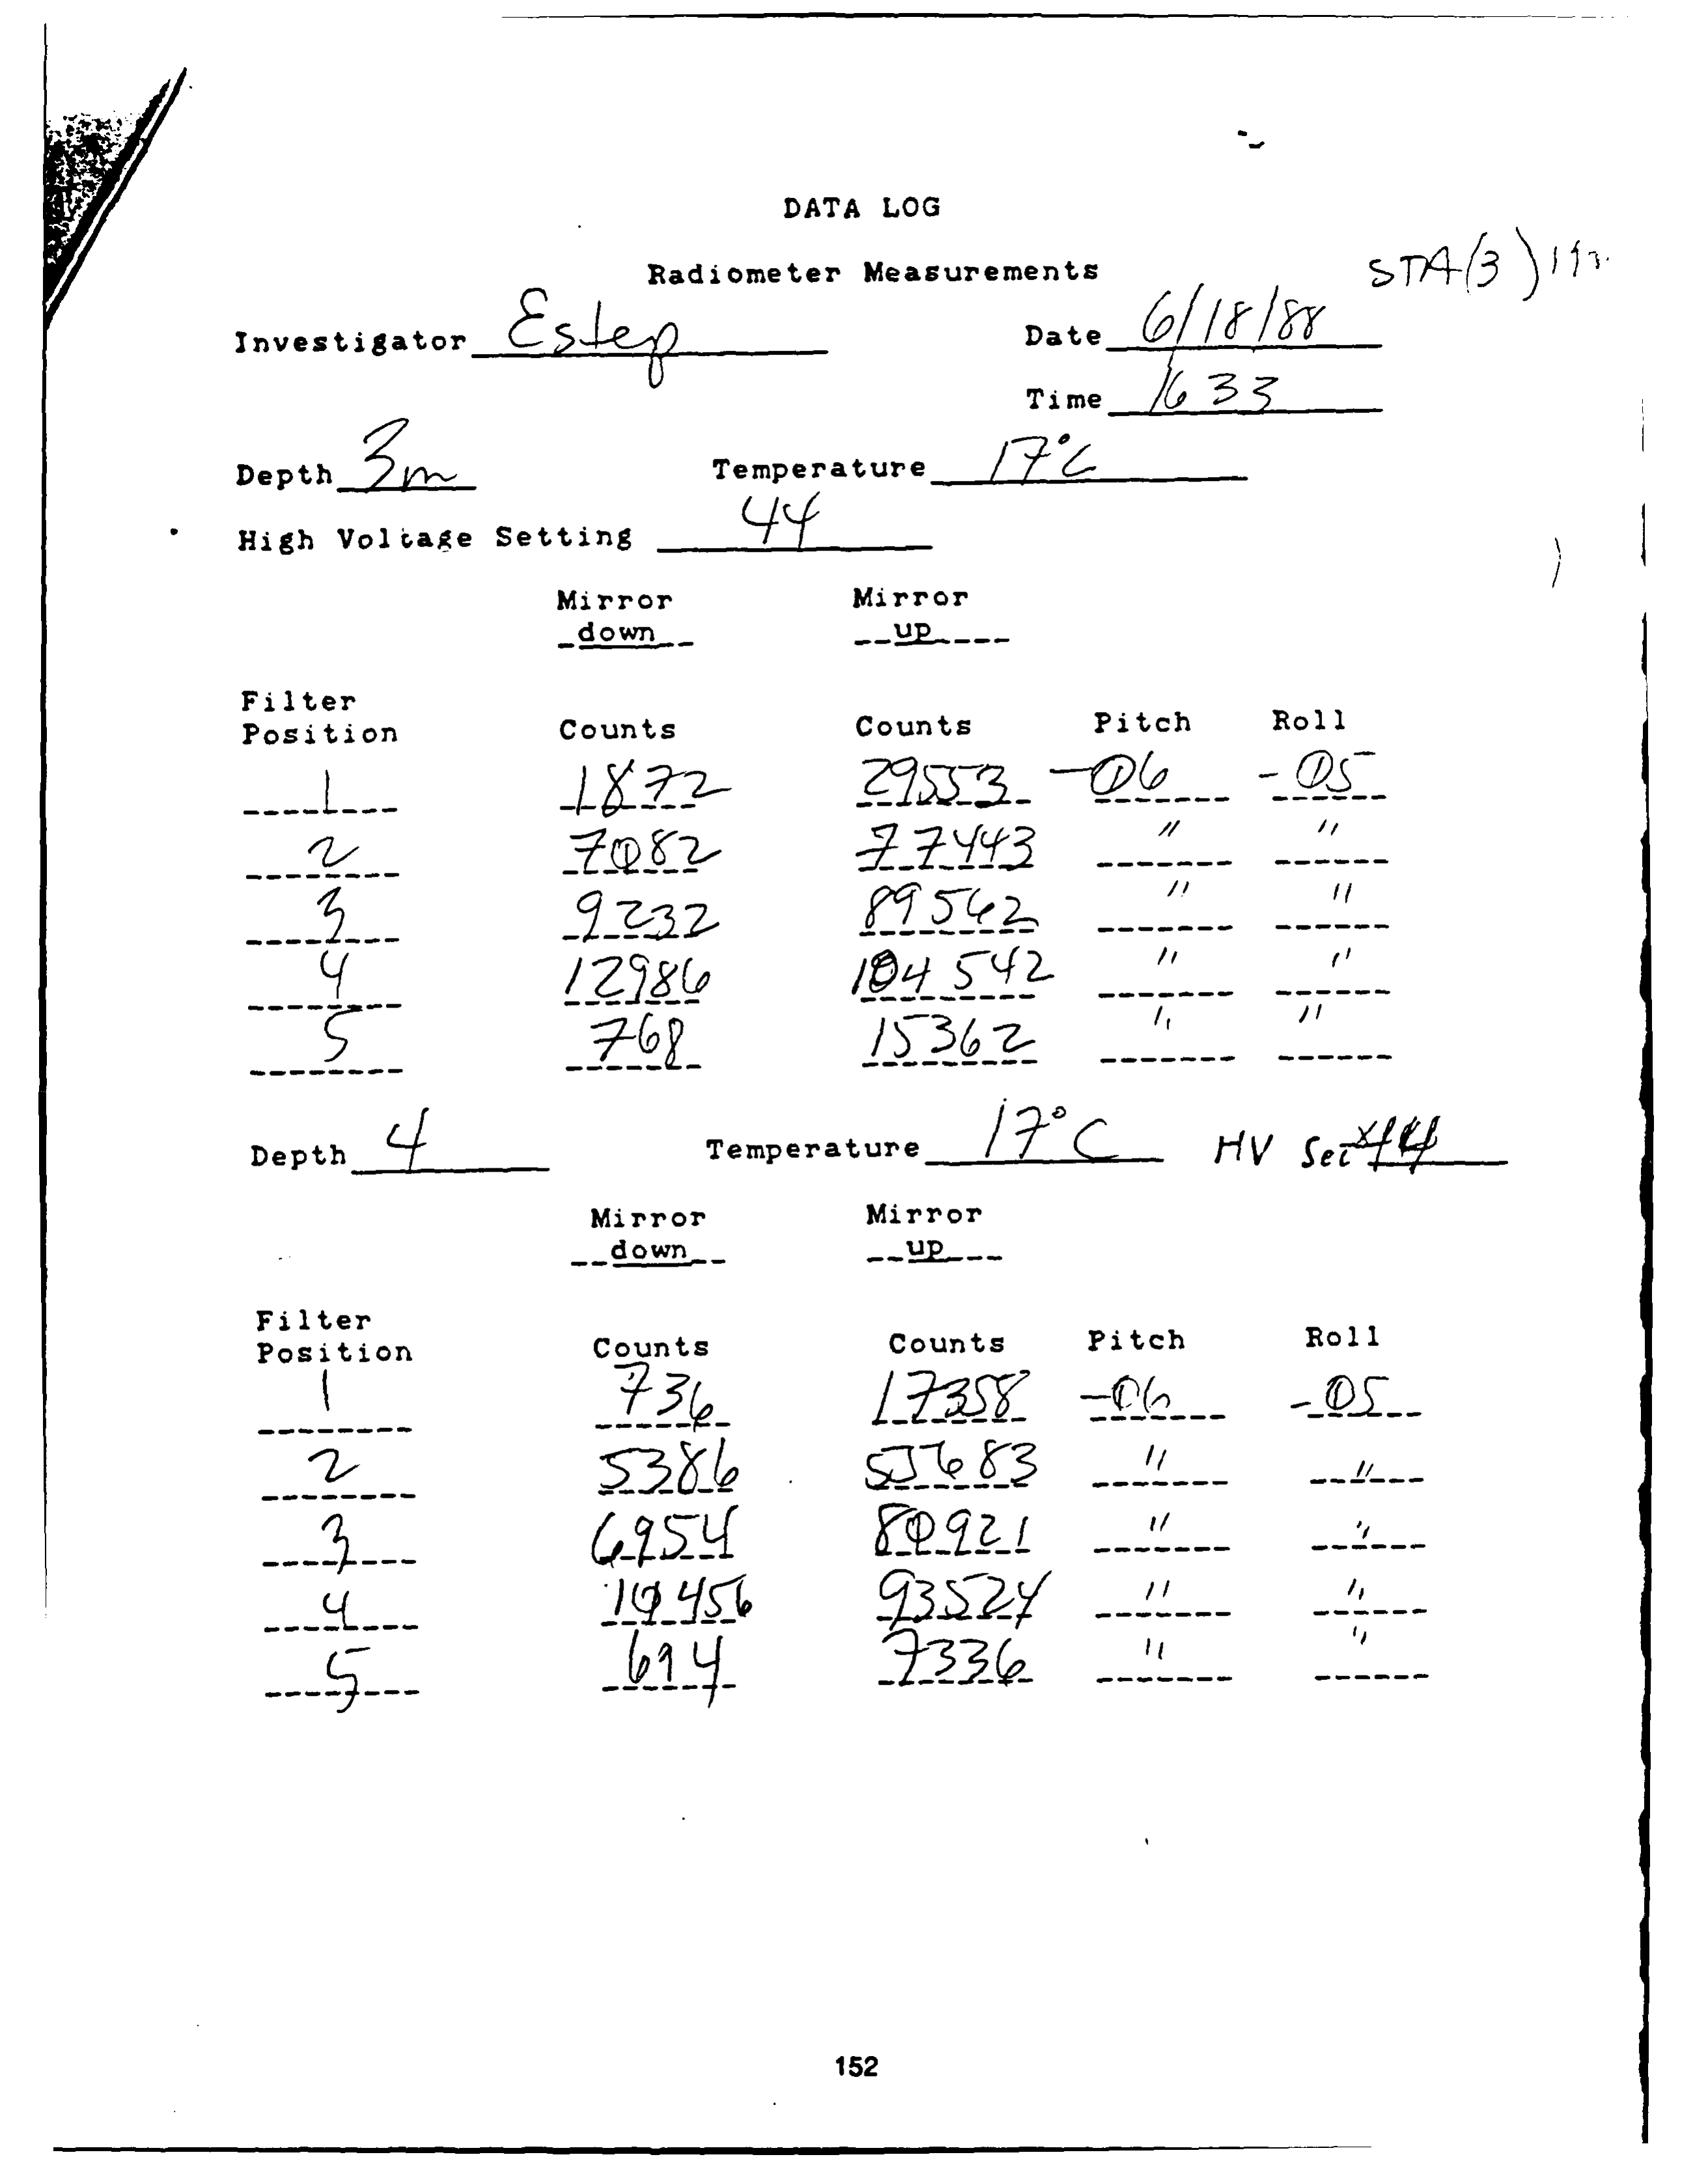 DATA LOG
Radiometer Measurements
STA(3)
Investigator Estep Date 6/18/88
Time 1633
Depth 3m Temperature 17°C
High Voltage Setting 44
Mirror Mirror
down up
Filter
Position Counts Counts Pitch Roll
1 1872 29553 -06 -05
2 7082 77443 " "
3 9232 89562 " "
4 12986 104542 " "
5 768 15362 " "
Depth 4 Temperature 17°C HV Set 44
Mirror Mirror
down up
Filter
Position Counts Counts Pitch Roll
1 736 17358 -06 -05
2 5386 55683 " "
3 6954 80921 " "
4 10456 93524 " "
5 614 7336 " "
152